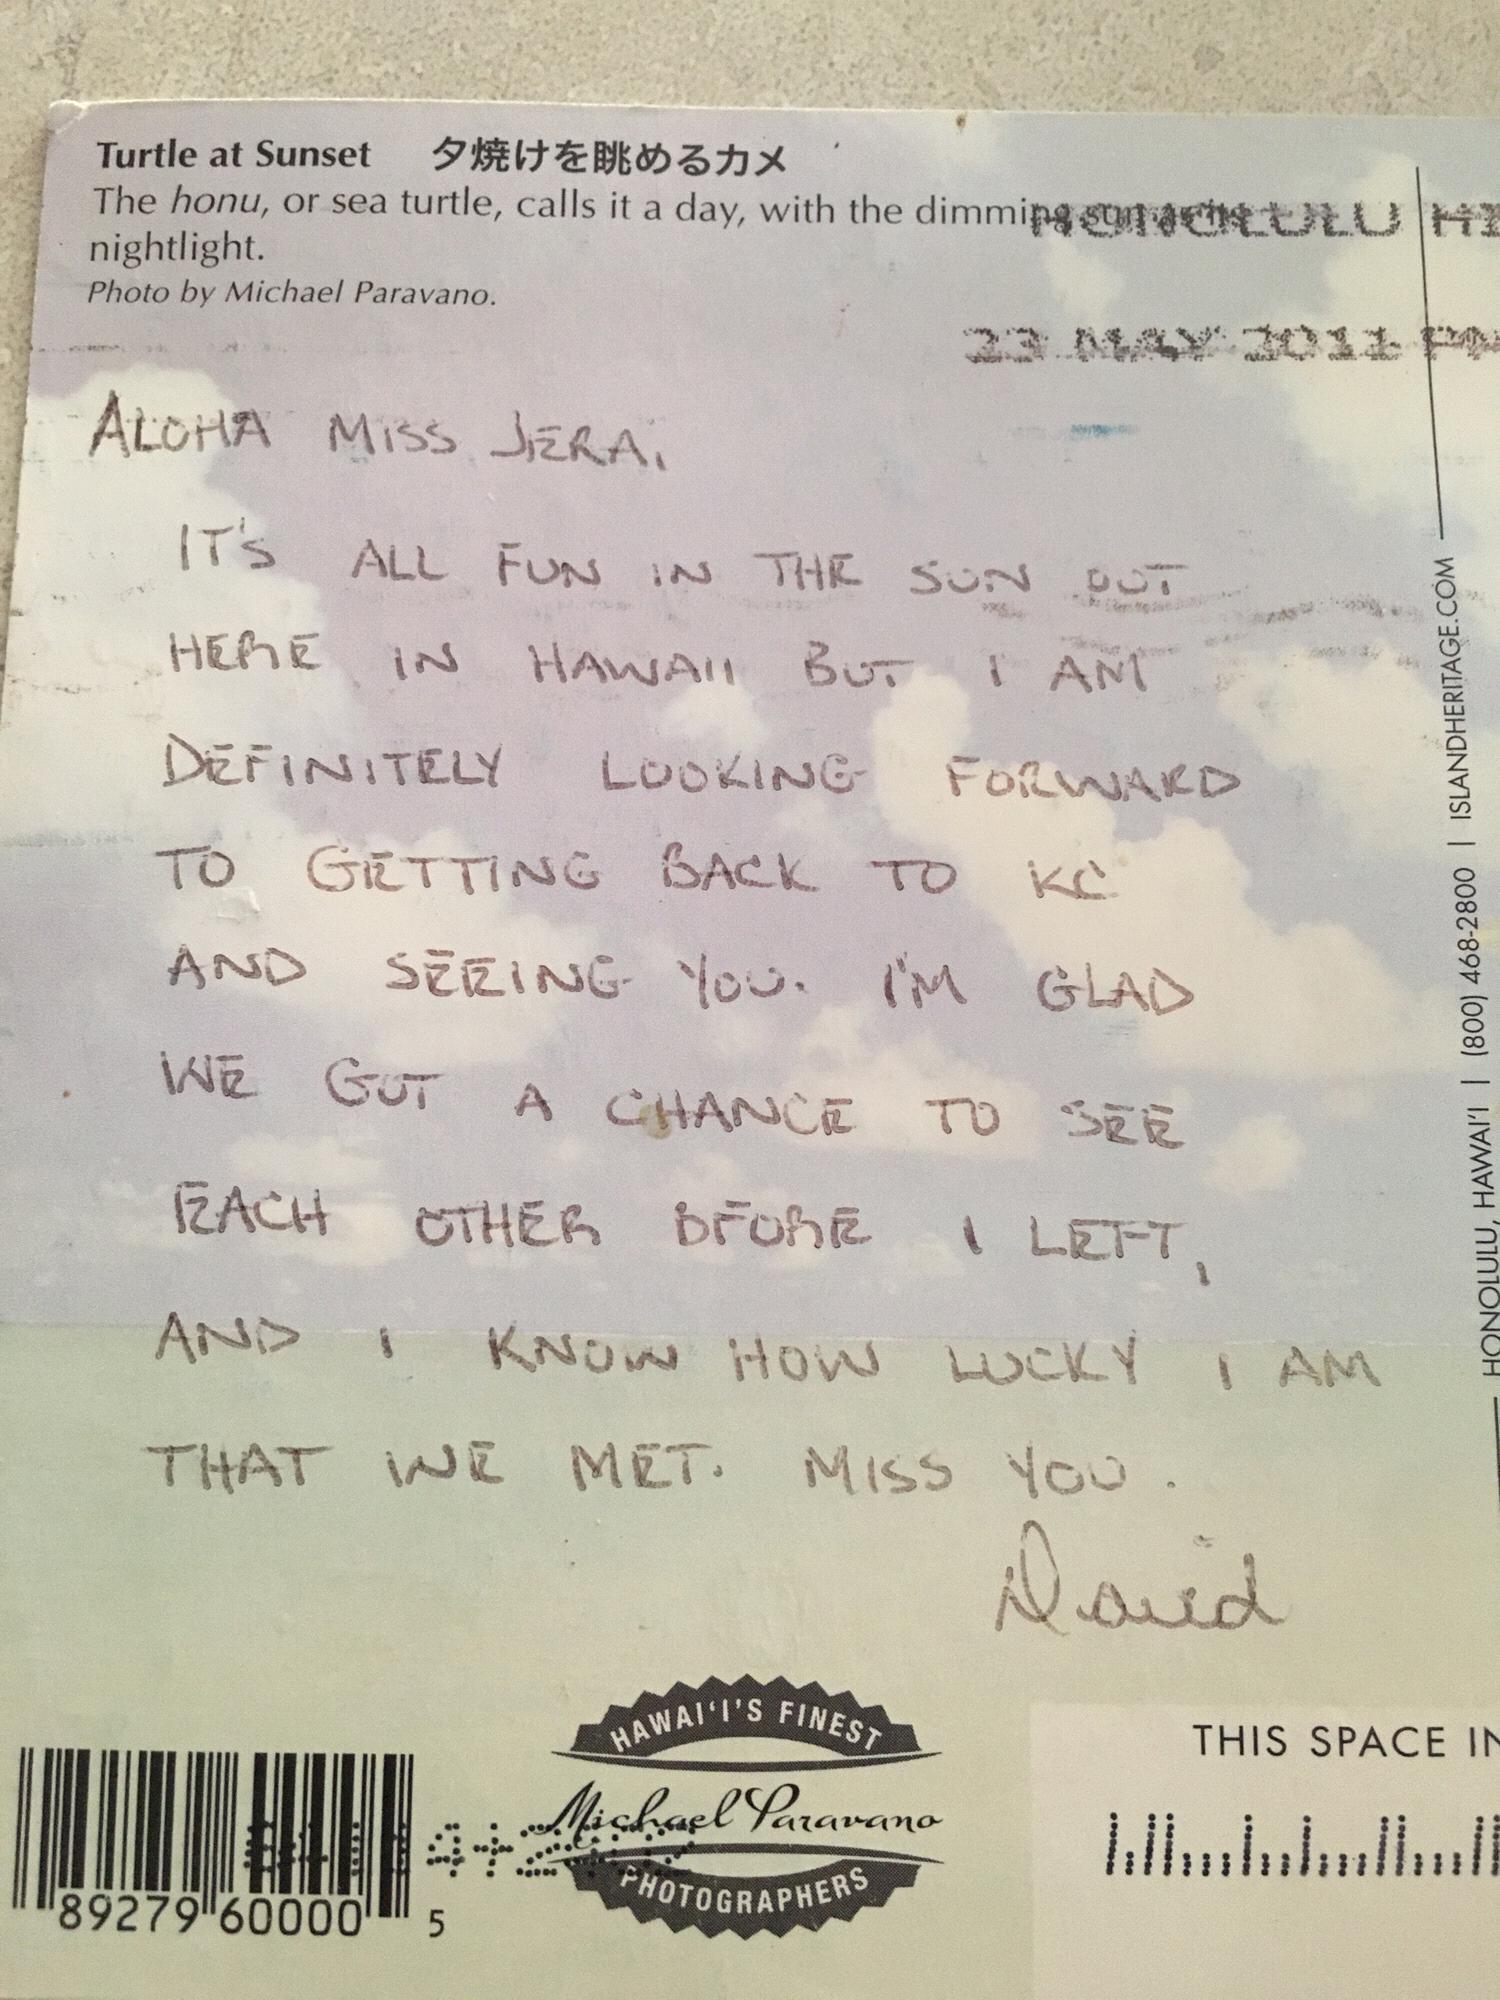 Turtle at Sunset 夕焼けを眺めるカメ
The honu, or sea turtle, calls it a day, with the dimming sun as its
nightlight.
Photo by Michael Paravano.
HONOLULU HI
23 MAY 2011 PM
ALOHA MISS JERA,
IT'S ALL FUN IN THE SUN OUT
HERE IN HAWAII BUT I AM
DEFINITELY LOOKING FORWARD
TO GETTING BACK TO KC
AND SEEING YOU. I'M GLAD
WE GOT A CHANCE TO SEE
EACH OTHER BEFORE I LEFT,
AND I KNOW HOW LUCKY I AM
THAT WE MET. MISS YOU.
David
HONOLULU, HAWAI'I | (800) 468-2800 | ISLANDHERITAGE.COM
HAWAI'I'S FINEST
Michael Paravano
PHOTOGRAPHERS
THIS SPACE IN
89279 60000 5